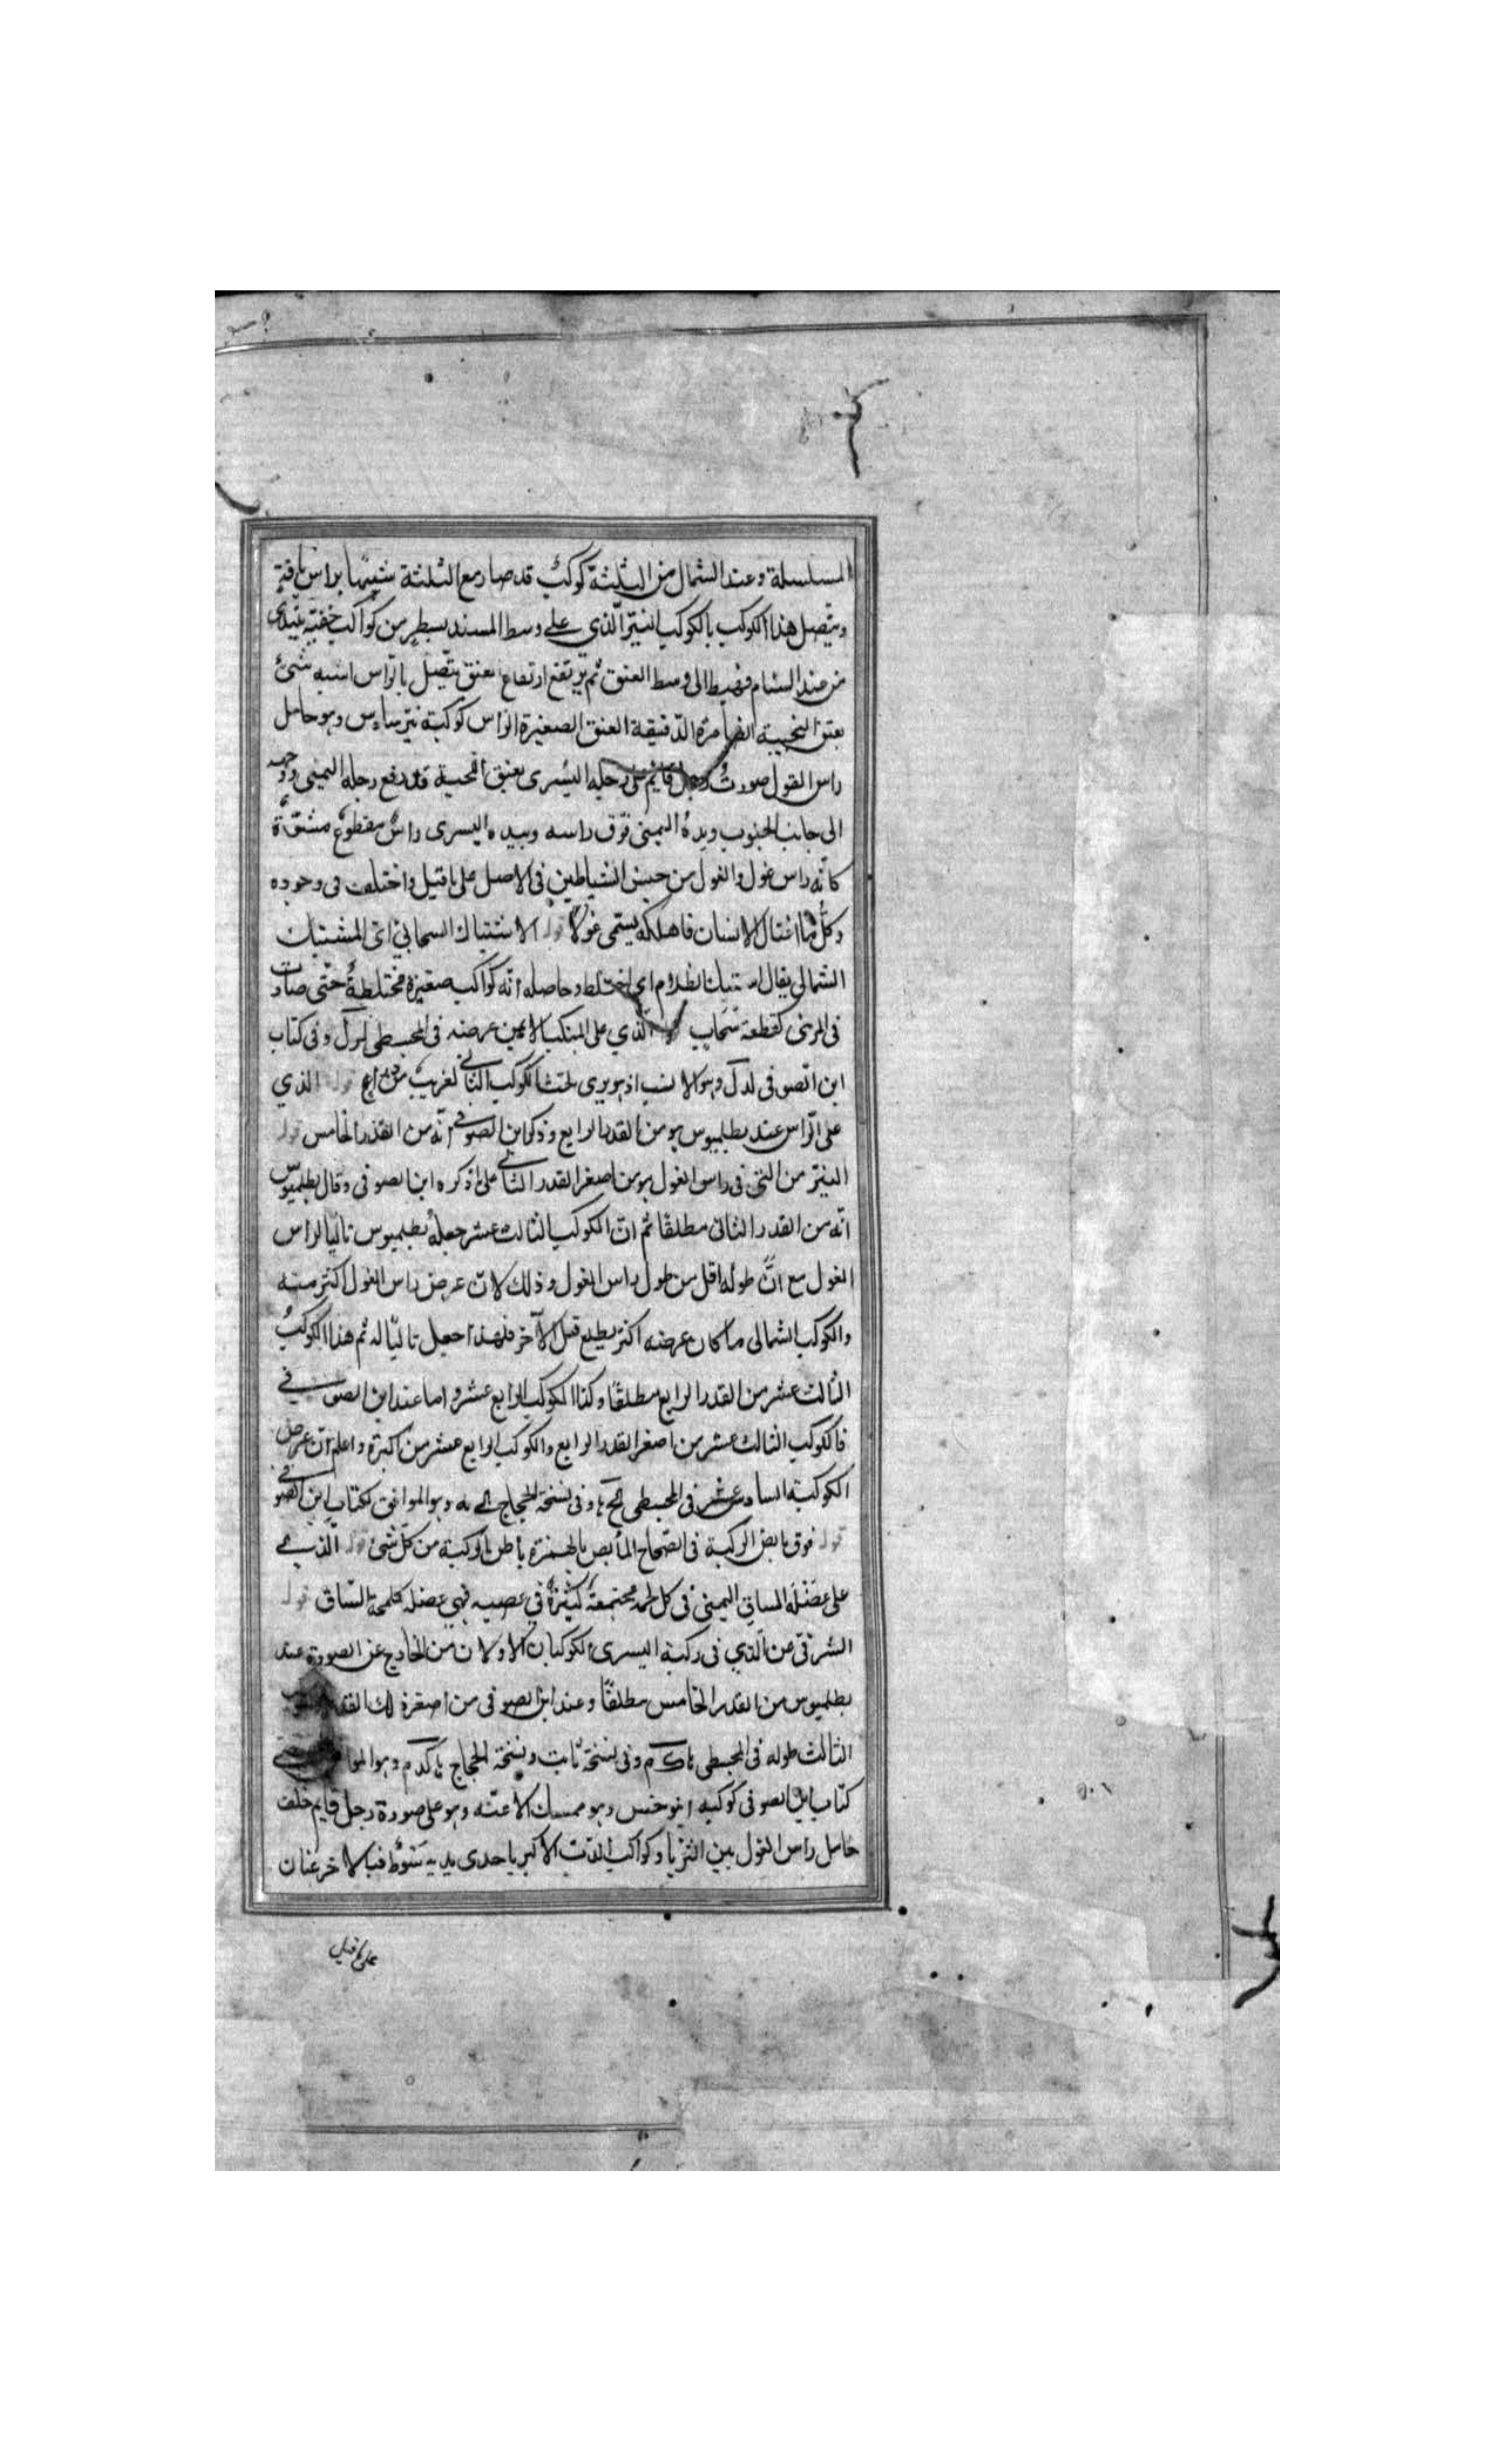 المسلسلة وعند الشمال من الثلثة كوكب قد صار مع الثلثة شبيها براس ناقة
ويتصل هذا الكوكب بالكوكب النير الذي على وسط المسند بسطر من كواكب خفية يبتدي
من عند السنام فهبط الى وسط العنق ثم يرتفع ارتفاع بعنق يتصل بالراس اشبه شئ
بعنق النجيبة الضامرة الدقيقة العنق الصغيرة الراس كوكبة برساوس وهو حامل
راس الغول صورت رجل قايم على رجله اليسرى بعنق قد رفع رجله اليمنى
الى جانب الجنوب ويده اليمنى فوق راسه وبيده اليسرى راس مقطوع مشوة
كانه راس غول والغول من جنس الشياطين في الاصل على ما قيل واختلف في وجوده
وكل ما اغتال الانسان فاهلكه يسمى غولا قوله الاشتباك السحابي اى المشتبك
الشمالى يقال اشتبك الظلام اي اختلط وحاصله انه كواكب صغيرة مختلطة حتى صارت
فى المرئى كقطعة سحاب قوله الذي على المنكب الايمن عرضه فى المجسطى لرل وفى كتاب
ابن الصوفى لدل وهو الانسب اذ هو يرى تحت الكوكب الثاني لقريب من قوله الذي
على الراس عند بطلميوس هو من القدر الرابع وذكر ابن الصوفي انه من القدر الخامس قوله
النير من التى فى راس الغول هو من اصغر القدر الثاني على ما ذكره ابن الصوفى وقال بطلميوس
انه من القدر الثانى مطلقا ثم ان الكوكب الثالث عشر جعله بطلميوس تاليا لراس
الغول مع ان طوله اقل من طول راس الغول وذلك لان عرض راس الغول اكثر منه
والكوكب الشمالى ما كان عرضه اكثر يطلع قبل الآخر فلهذا جعل تاليا له ثم هذا الكوكب
الثالث عشر من القدر الرابع مطلقا وكذا الكوكب الرابع عشر واما عند ابن الصوفي
فالكوكب الثالث عشر من اصغر القدر الرابع والكوكب الرابع عشر من اكبره واعلم ان عرض
الكوكبة السادس عشر فى المجسطى وفى نسخة الحجاج وهو الموافق لكتاب ابن الصوفي
قوله فوق مابض الركبة فى الصحاح المأبض بالهمزة باطن الركبة من كل شئ قوله الذي
على عضلة الساق اليمنى فى كل لحمة مجتمعة كثيرة في عصبه فهي عضلة كلحمة الساق قوله
الشرقى من الذي فى ركبة اليسرى الكوكبان الاولان من الخارج عن الصورة عند
بطلميوس من القدر الخامس مطلقا وعند ابن الصوفى من اصغر ذلك القدر
الثالث طوله فى المجسطى وفى نسخة ثابت ونسخة الحجاج وهو
كتاب ابن الصوفى كوكبه انيوخس وهو ممسك الاعنه وهو على صورة رجل قايم خلف
حامل راس الغول بين الثريا وكواكب الدب الاكبر باحدى يديه سوط فبالاخر عنان
على ما قيل